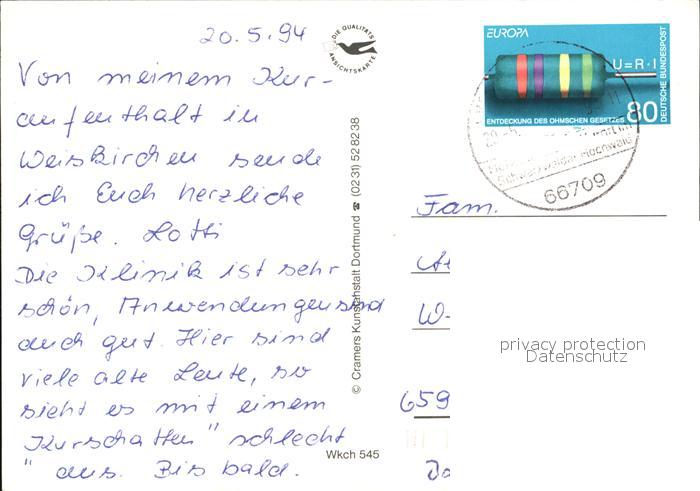 20.5.94
DIE QUALITÄTS ANSICHTSKARTE
Von meinem Kur-
aufenthalt in
Weiskirchen sende
ich Euch herzliche
Grüße. Lotti
Die Klinik ist sehr
schön, Anwendungen sind
auch gut. Hier sind
viele alte Leute, so
sieht es mit einem
"Kurschatten" schlecht
aus. Bis bald.
© Cramers Kunstanstalt Dortmund ☎ (0231) 52 82 38
Wkch 545
EUROPA
U=R·I
DEUTSCHE BUNDESPOST
ENTDECKUNG DES OHMSCHEN GESETZES
80
Schwarzwälder Hochwald
66709
Fam.
W-
659
privacy protection
Datenschutz